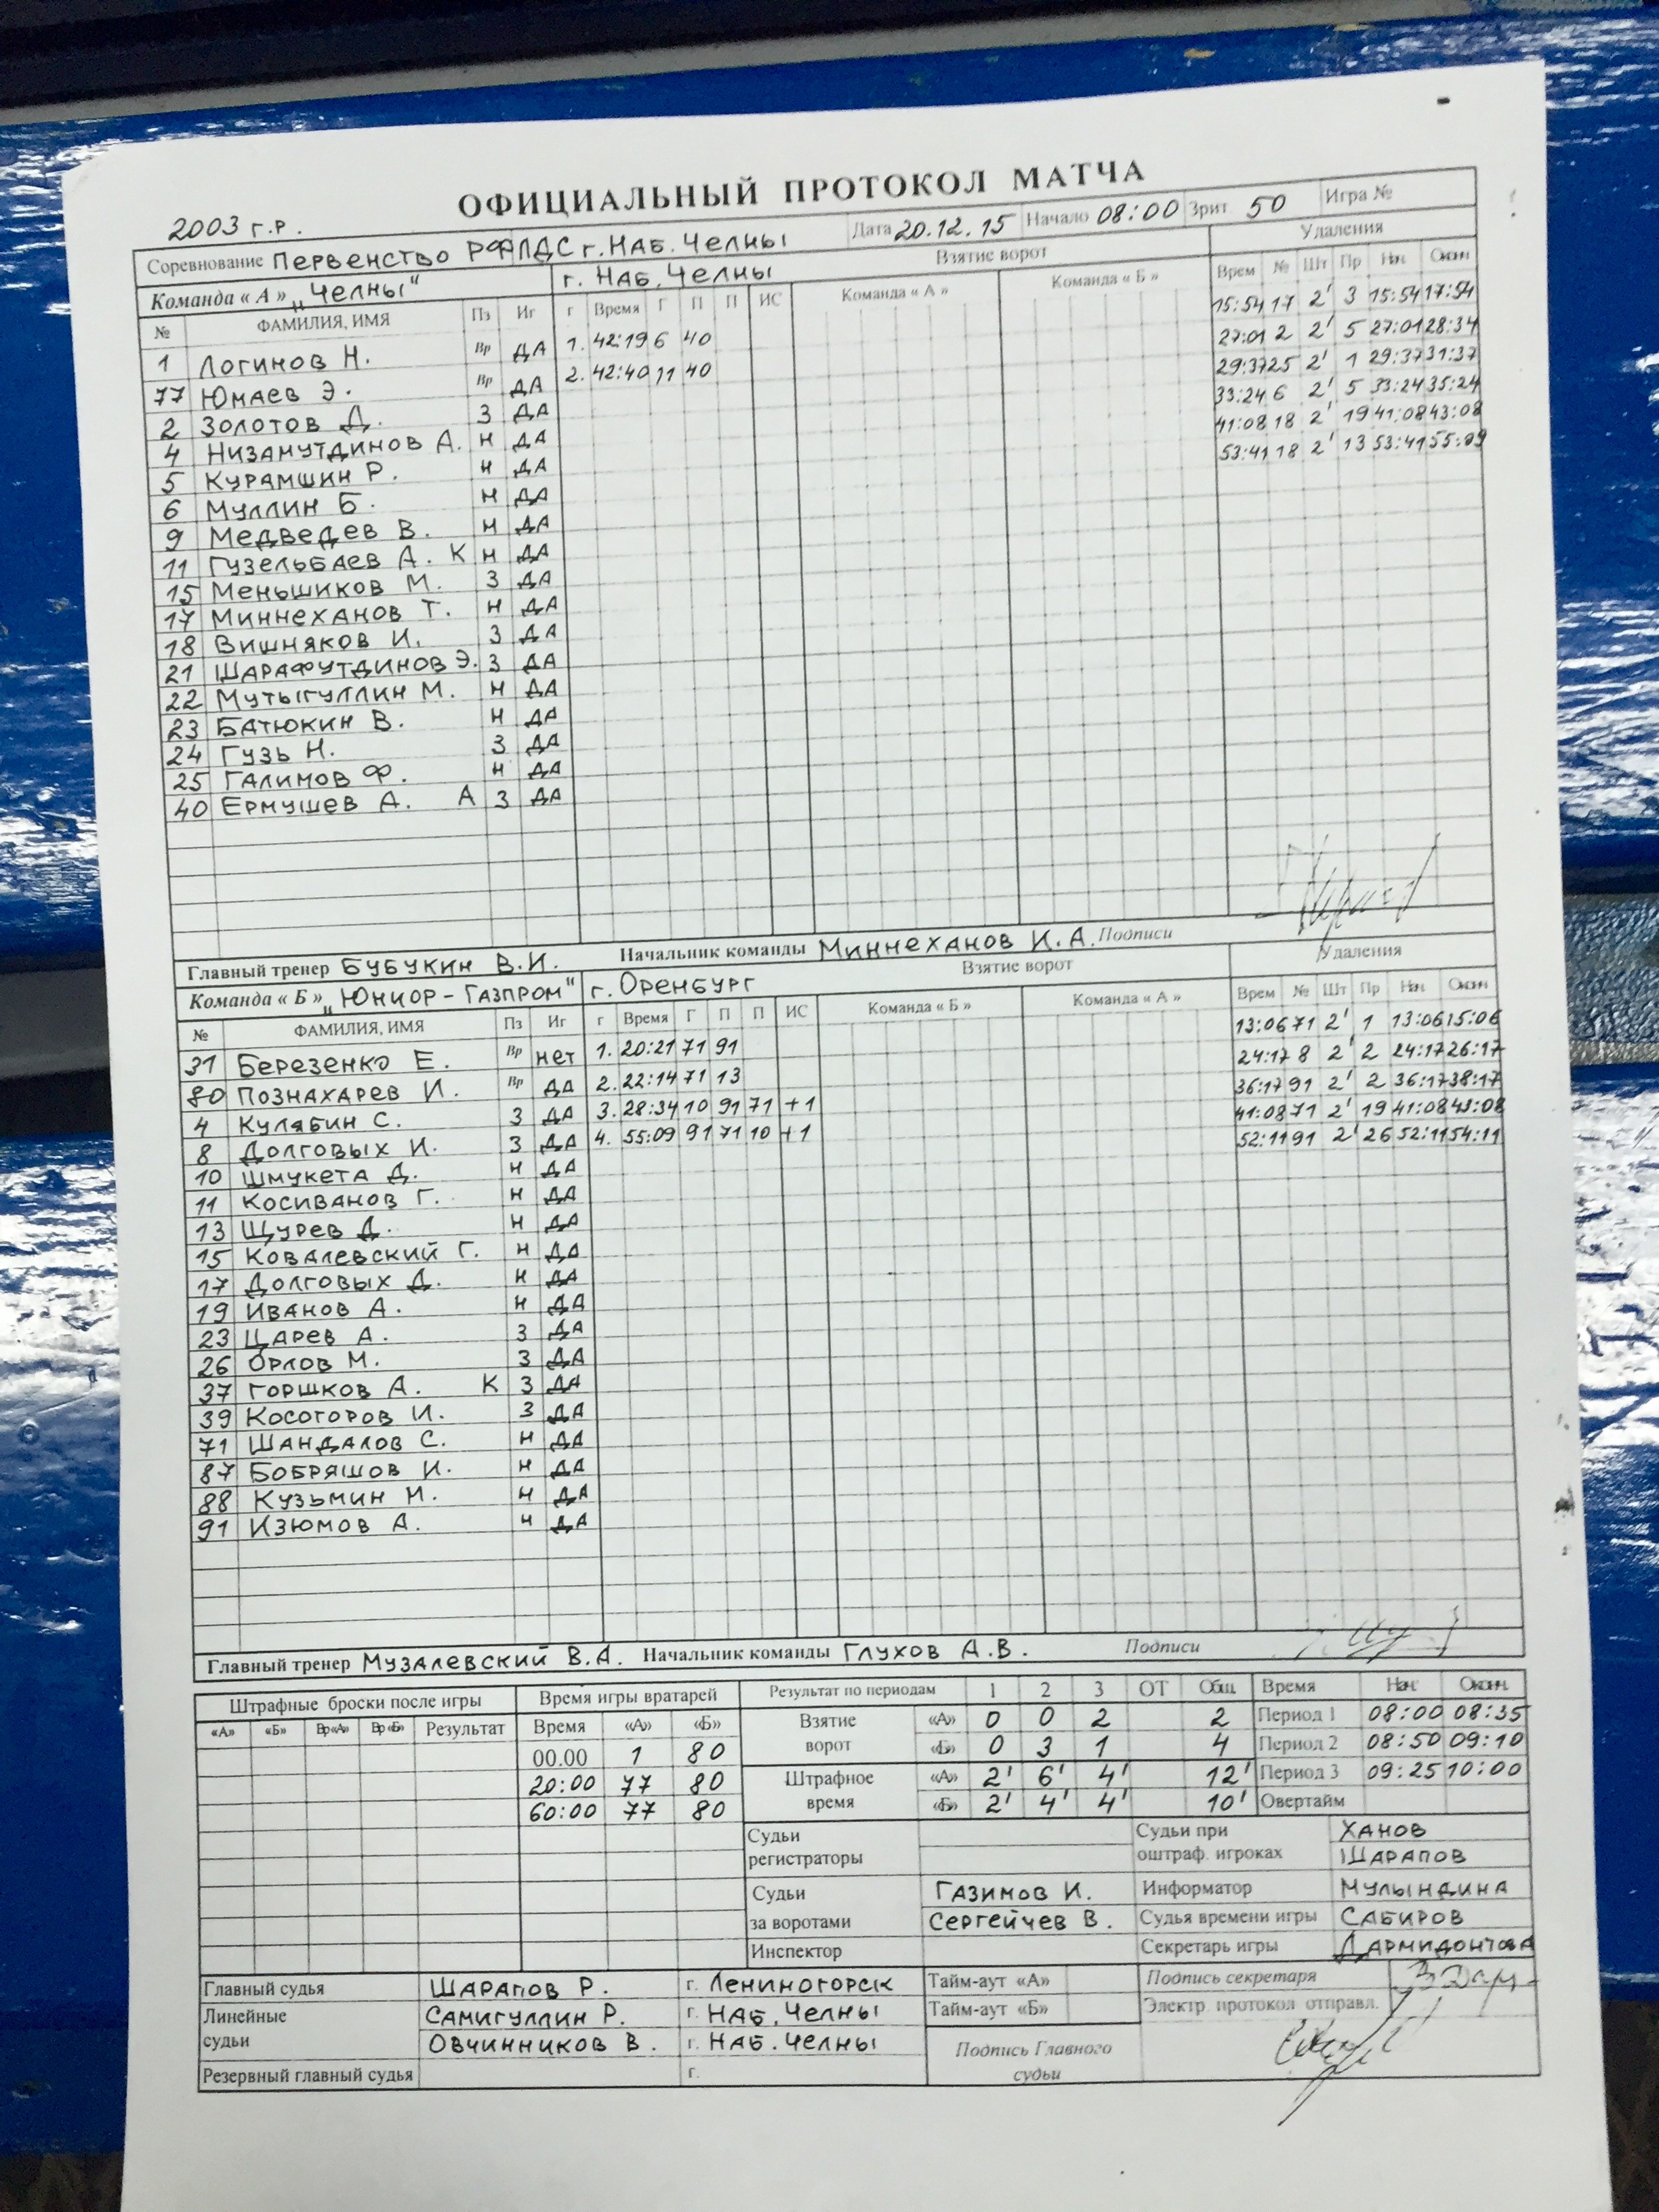 ОФИЦИАЛЬНЫЙ ПРОТОКОЛ МАТЧА
2003 г.р.
Соревнование Первенство РФ ЛДС г. Наб. Челны Дата 20.12.15 Начало 08:00 Зрит 50 Игра №
Команда « А » „Челны" г. Наб. Челны Взятие ворот Удаления
№ ФАМИЛИЯ, ИМЯ Пз Иг г Время Г П П ИС Команда « А » Команда « Б » Врем № Шт Пр Нач. Оконч.
1 Логинов Н. Вр ДА 1. 42:19 6 40 15:54 17 2' 3 15:54 17:54
77 Юмаев Э. Вр ДА 2. 42:40 11 40 27:01 2 2' 5 27:01 28:34
2 Золотов Д. З ДА 29:37 25 2' 1 29:37 31:37
4 Низамутдинов А. Н ДА 33:24 6 2' 5 33:24 35:24
5 Курамшин Р. Н ДА 41:08 18 2' 19 41:08 43:08
6 Муллин Б. Н ДА 53:41 18 2' 13 53:41 55:09
9 Медведев В. Н ДА
11 Гузельбаев А. К Н ДА
15 Меньшиков М. З ДА
17 Миннеханов Т. Н ДА
18 Вишняков И. З ДА
21 Шарафутдинов Э. З ДА
22 Мутыгуллин М. Н ДА
23 Батюкин В. Н ДА
24 Гузь Н. З ДА
25 Галимов Ф. Н ДА
40 Ермушев А. А З ДА
Главный тренер Бубукин В.И. Начальник команды Миннеханов И.А. Подписи
Команда « Б » „Юниор-Газпром" г. Оренбург Взятие ворот Удаления
№ ФАМИЛИЯ, ИМЯ Пз Иг г Время Г П П ИС Команда « Б » Команда « А » Врем № Шт Пр Нач. Оконч.
31 Березенко Е. Вр нет 1. 20:21 71 91 13:06 71 2' 1 13:06 15:06
80 Познахарев И. Вр ДА 2. 22:14 71 13 24:17 8 2' 2 24:17 26:17
4 Кулябин С. З ДА 3. 28:34 10 91 71 +1 36:17 91 2' 2 36:17 38:17
8 Долговых И. З ДА 4. 55:09 91 71 10 +1 41:08 71 2' 19 41:08 43:08
10 Шмукета Д. Н ДА 52:11 91 2' 26 52:11 54:11
11 Косиванов Г. Н ДА
13 Щурев Д. Н ДА
15 Ковалевский Г. Н ДА
17 Долговых Д. Н ДА
19 Иванов А. Н ДА
23 Царев А. З ДА
26 Орлов М. З ДА
37 Горшков А. К З ДА
39 Косогоров И. З ДА
71 Шандалов С. Н ДА
87 Бобряшов И. Н ДА
88 Кузьмин М. Н ДА
91 Изюмов А. Н ДА
Главный тренер Музалевский В.А. Начальник команды Глухов А.В. Подписи
Штрафные броски после игры Время игры вратарей Результат по периодам 1 2 3 ОТ Общ Время Нач. Оконч.
«А» «Б» Вр«А» Вр«Б» Результат Время «А» «Б» Взятие ворот «А» 0 0 2 2 Период 1 08:00 08:35
00.00 1 80 «Б» 0 3 1 4 Период 2 08:50 09:10
20:00 77 80 Штрафное время «А» 2' 6' 4' 12' Период 3 09:25 10:00
60:00 77 80 «Б» 2' 4' 4' 10' Овертайм
Судьи регистраторы Судьи при оштраф. игроках Ханов
Шарапов
Судьи за воротами Газимов И. Информатор Мулындина
Сергейчев В. Судья времени игры Сабиров
Инспектор Секретарь игры Дармидонтова
Главный судья Шарапов Р. г. Лениногорск Тайм-аут «А» Подпись секретаря
Линейные судьи Самигуллин Р. г. Наб. Челны Тайм-аут «Б» Электр. протокол отправл.
Овчинников В. г. Наб. Челны Подпись Главного судьи
Резервный главный судья г.